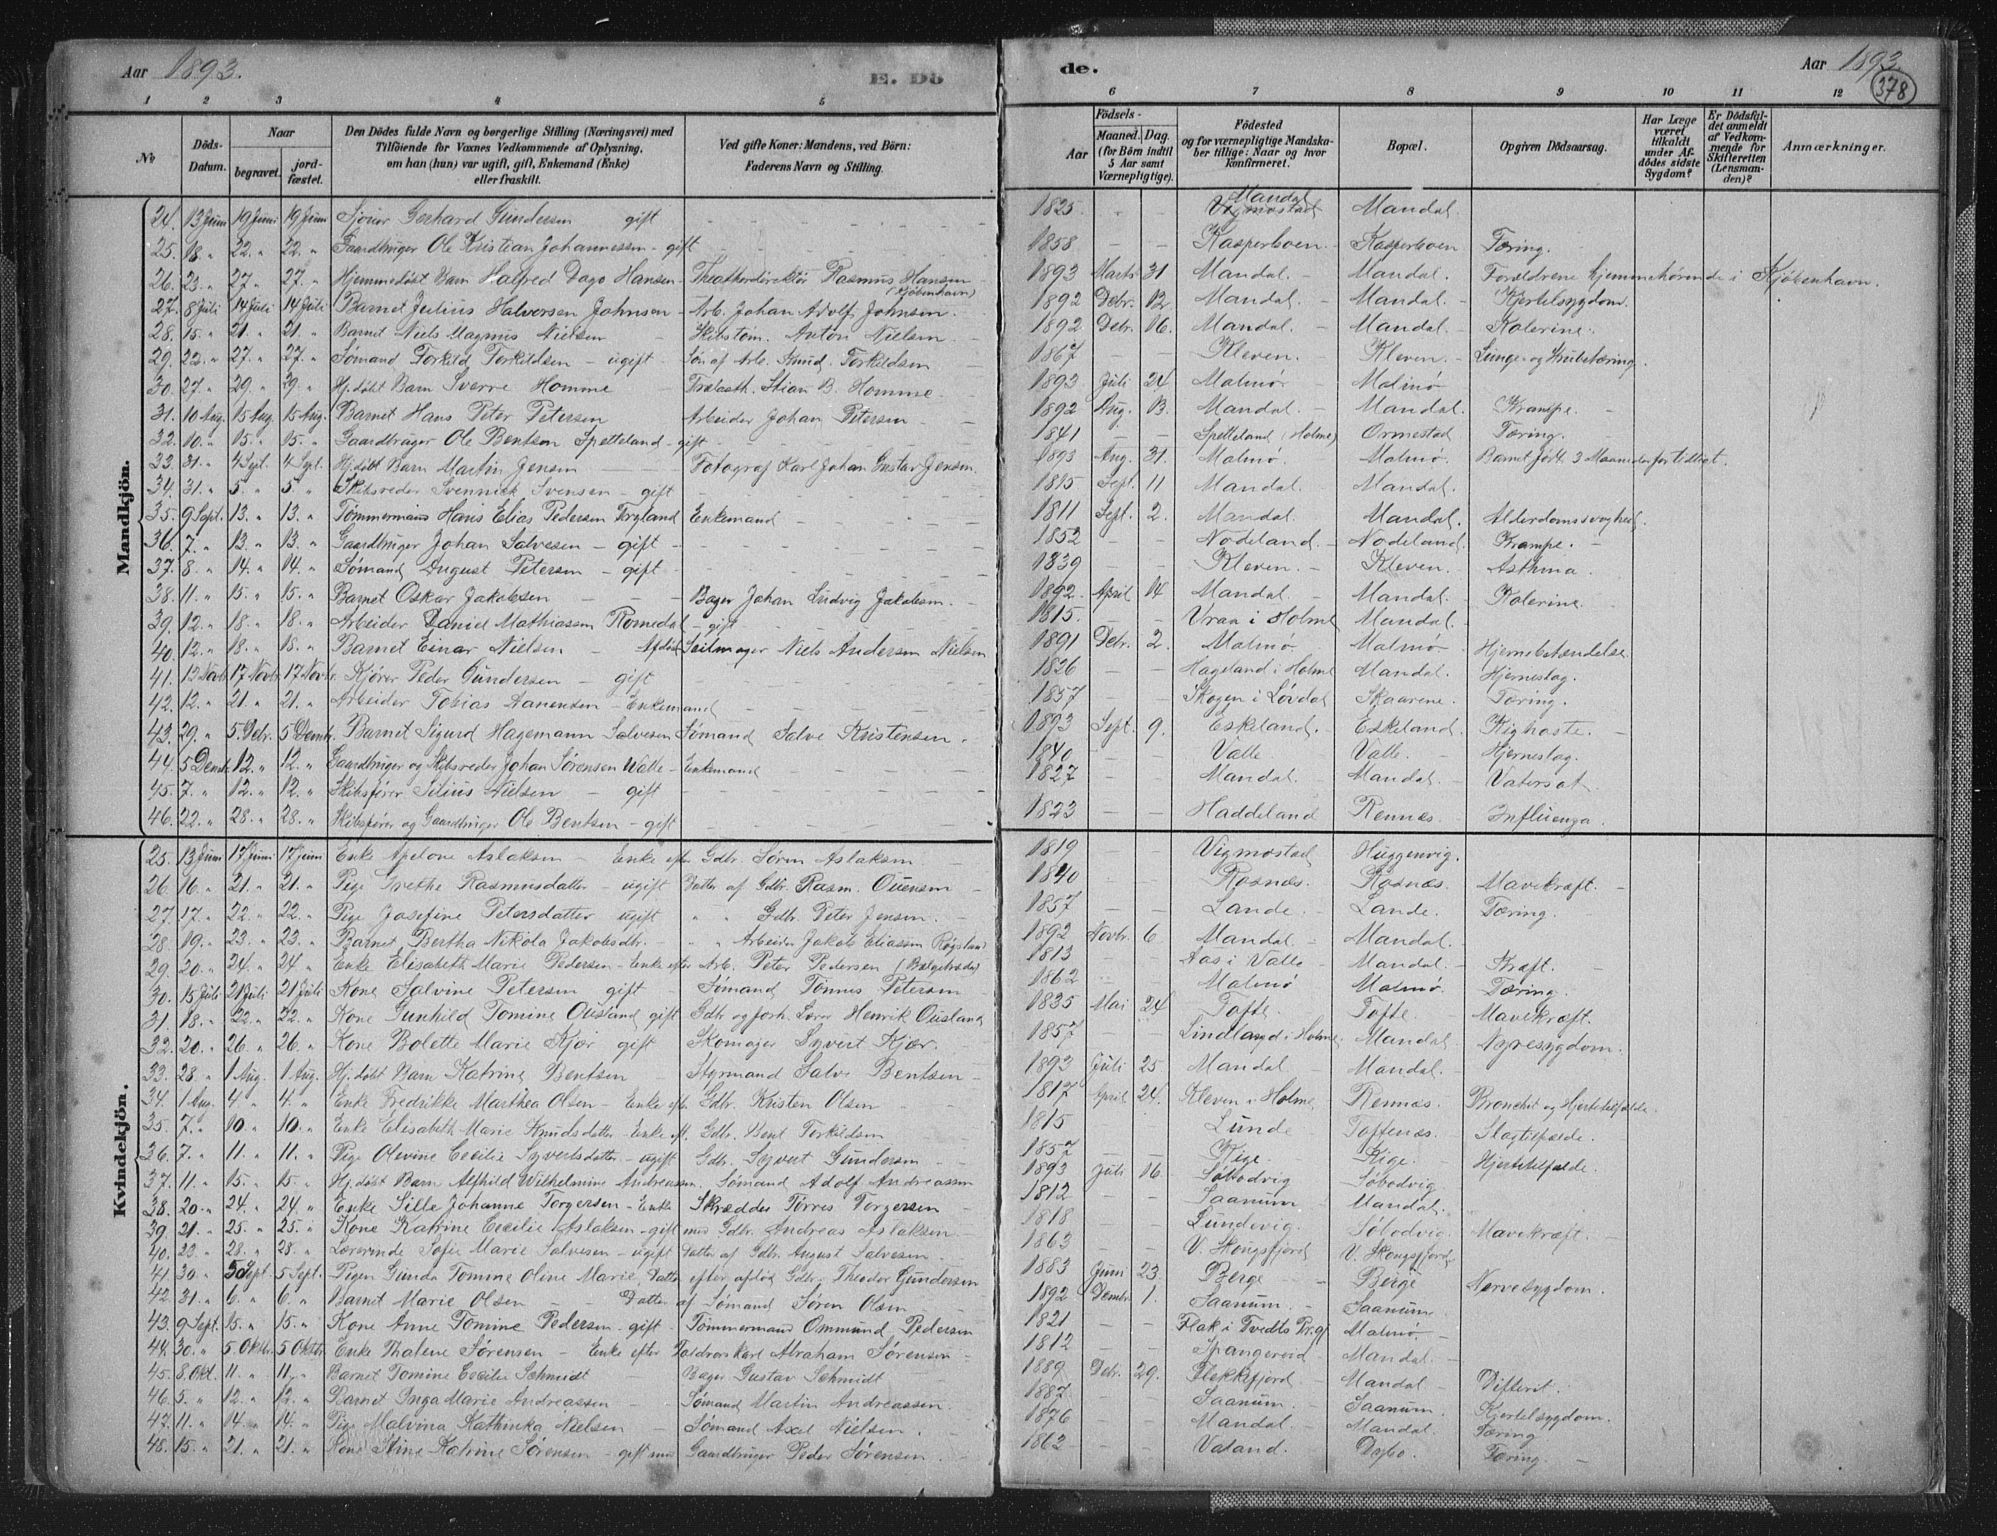 Aar 1893.
E. Dö
de.
Aar 1893.
378
1 2 3 4 5
6 7 8 9 10 11 12
No
Döds-Datum.
Naar
begravet.
jordfæstet.
Den Dödes fulde Navn og borgerlige Stilling (Næringsvei) med
Tilföiende for Voxnes Vedkommende af Oplysning,
om han (hun) var ugift, gift, Enkemand (Enke)
eller fraskilt.
Ved gifte Koner: Mandens, ved Börn:
Faderens Navn og Stilling.
Födsels-
Aar
Maaned. Dag.
(for Börn indtil
5 Aar samt
Værnepligtige).
Födested
og for værnepligtige Mandska-
ber tillige: Naar og hvor
konfirmeret.
Bopæl.
Opgiven Dödsaarsag.
Har Læge
været
tilkaldt
under Af-
dödes sidste
Sygdom?
Er Dödsfal-
det anmeldt
af Vedkom-
mende for
Skifteretten
(Lensman-
den)?
Anmærkninger.
Mandkjön.
24. 13 Juni 19 Juni 19 Juni Gerhard Gundersen gift 1825 Mandal Vigmostad Mandal.
25. 18. „ 22. „ 22. „ Gaardbruger Ole Kristian Johannessen - gift 1858 Kasperboen - Kasperboen Tæring.
26. 23. „ 27 „ 27. „ Hjemmedöbt Barn Halfred Dago Hansen - Theaterdirektör Rasmus Hansen (Kjöbenhavn) 1893 Marts 31 Mandal. - Mandal. - Forældrene hjemmehörende i Kjöbenhavn.
27. 8 Juli 14 Juli 14 Juli Barnet Julius Halvorsen Johnsen - Arb. Johan Adolf Johnsen. 1892 Debr. 12 Mandal. - Mandal. - Kjertelsygdom.
28. 15. „ 21. „ 21. „ Barnet Niels Magnus Nielsen Skibstöm. Anton Nielsen 1892 Debr. 16. Mandal. - Mandal. - Kolerine.
29. 22. „ 27. „ 27. „ Sömand Torkild Torkildsen - ugift Sön af Arb. Knud Torkildsen 1867 Kleven. Kleven. - Lunge- og Strubetæring.
30. 27 „ 29. „ 29. „ Hj. döbt Barn Sverre Homme Stian B. Homme. 1893. Juli 24 Malmö. - Malmö
31. 10 Aug. 15 Aug. 15 Aug. Barnet Hans Peter Petersen Arbeider Johan Petersen 1892 Aug. 13. Mandal. - Mandal. Krampe.
32. 10. „ 15. „ 15. „ Gaardbruger Ole Bentsen Spetteland - gift 1841 Spetteland (Holme) Ormestad Tæring.
33. 31. „ 4 Sept. 4 Sept. Hj. döbt Barn Martin Jensen Fotograf Karl Johan Gustav Jensen. 1893 Aug. 31. Malmö. Malmö. Barnet födt 3 Maaneder for tidligt.
34. 31. „ 5. „ 5. „ Skibsreder Svennick Svensen - gift 1815 Sept. 11 Mandal. Mandal.
35. 9 Sept. 13. „ 13. „ Tömmermand Hans Elias Pedersen Tryland Enkemand 1811 Sept. 2. Mandal Mandal. Alderdomssvaghed.
36. 7. „ 13. „ 13. „ Gaardbruger Johan Salvesen - gift 1852 Nodeland. - Nodeland. Krampe.
37. 8. „ 14. „ 14. „ Sömand August Petersen - gift 1839 Kleven. - Kleven. - Asthma.
38. 11. „ 15. „ 15. „ Barnet Oskar Jakobsen Bager Johan Ludvig Jakobsen. 1892. April 14 Mandal. - Mandal. Kolerine.
39. 12. „ 18. „ 18. „ Arbeider Daniel Mathiassen Romedal - gift 1815. Vraa i Holme Mandal.
40. 12. „ 18. „ 18. „ Barnet Einar Nielsen Afdöde Seilmager Niels Andersen Nielsen 1891 Debr. 2. Malmö. Malmö. Hjernebetændelse.
41. 12 Novbr. 17 Novbr. 17 Novbr. Kjörer Peder Gundersen - gift 1826 Hageland i Holme Mandal. Hjerneslag.
42. 12. „ 21. „ 21. „ Arbeider Tobias Aanensen - Enkemand 1857 Skogen i Lövdal Skaarene. Tæring.
43. 29. „ 5. Debr. 5 Dembr. Barnet Sigurd Hagemann Salvesen Sömand Salve Kristensen. 1893 Sept. 9. Eskeland. Eskeland. Kighoste.
44. 5 Dembr. 12. „ 12. „ Gaardbruger og Skibsreder Johan Sörensen Valle - Enkemand 1840. Valle. Valle. Hjerneslag.
45. 7. „ 12. „ 12. „ Skibsförer Silius Nielsen - gift 1827 Mandal. - Mandal. - Vatersot.
46. 22. „ 28. „ 28. „ Skibsförer og Gaardbruger Ole Bentsen - gift 1823 Haddeland Rennæs. Influenza.
Kvindekjön.
25. 13 Juni 17 Juni 17 Juni Enke Apelone Aslaksen - Enke efter Gdbr. Sören Aslaksen 1819 Vigmostad Huggenvig.
26. 16. „ 21. „ 21. „ Pige Grethe Rasmusdatter - ugift Datter af Gdbr. Rasm. Ouensen 1840 Rosnæs. Rosnæs. Mavekræft.
27. 17. „ 22. „ 22. „ Pige Josefine Petersdatter ugift „ „ Gdbr. Peter Jensen. 1857 Lande. Lande. Tæring.
28. 19. „ 23. „ 23. „ Barnet Bertha Nikola Jakobsdtr. „ „ Arbeider Jakob Eliassen 1892 Novbr. 6. Mandal. Mandal.
29. 20. „ 24. „ 24. „ Enke Elisabeth Marie Pedersen - Enke efter Arb. Peter Pedersen 1813 Aas i Valle Mandal. - Kræft.
30. 15 Juli 21 Juli 21 Juli Kone Salvine Petersen gift - Sömand Tönnes Petersen 1862 Malmö Malmö. Tæring.
31. 18. „ 22. „ 22. „ Kone Gunhild Tomine Ousland gift Gdbr. og forh. Lærer Henrik Ousland 1835 Mai 24 Tofte. Tofte. Mavekræft.
32. 20. „ 26. „ 26. „ Kone Bolette Marie Kjær gift Skomager Syvert Kjær. 1857 i Holme Mandal. Nyresygdom.
33. 28 „ 1 Aug. 1 Aug. Hj. döbt Barn Katrine Bentsen Styrmand Salve Bentsen 1893 Juli 25. Mandal. Mandal.
34. 1 Aug. 4 „ 4. „ Enke Fredrikke Marthea Olsen - Enke efter Gdbr. Kristen Olsen 1817 April 24. Kleven i Holme. Rennæs. Bronchit og Hjertetilfælde.
35. 7. „ 10. „ 10. „ Enke Elisabeth Marie Knudsdatter - Enke ef. Gdbr. Bent Torkildsen 1815 Lunde Toftenæs. - Slagtilfælde.
36. 7. „ 11. „ 11. „ Pige Olevine Cecilie Syvertsdatter - ugift Gdbr. Syvert Gundersen 1857 Kige. Kige. Hjertetilfælde.
37. 11. „ 15. „ 15. „ Hj. döbt Barn Alfhild Wilhelmine Andreassen. Sömand Adolf Andreassen 1893 Juli 16. Söbodvig Söbodvig.
38. 20. „ 24. „ 24. „ Enke Sille Johanne Torgersen - Enke Skrædder Torres Torgersen 1812 Saanum. Mandal.
39. 21. „ 25. „ 25. „ Kone Katrine Cecilie Aslaksen - gift med Gdbr. Andreas Aslaksen 1818 Lundevig. Söbodvig. Mavekræft.
40. 23. „ 28. „ 28. „ Lærerinde Sofie Marie Salvesen - ugift Datter af Gdbr. August Salvesen. 1863 V. Skogsfjord V. Skogsfjord.
41. 30. „ 5 Sept. 5 Sept. Pigen Gunda Tomine Oline Marie, Datter efter afdöd Gdbr. Theodor Gundersen 1883 Juni 23. Berge Berge Nervesygdom.
42. 31. „ 6. „ 6. „ Barnet Marie Olsen Datter af Sömand Sören Olsen 1892 Dembr. 1. Saanum. Saanum.
43. 9 Sept. 15. „ 15. „ Kone Anne Tomine Pedersen - gift - Tömmermand Ommund Pedersen 1821 Flak i Tvedts Pr.gj. Malmö.
44. 30. „ 5 Oktbr. 5 Oktbr. Enke Thalene Sörensen - Enke efter Abraham Sörensen 1812 Spangereid Mandal.
45. 8. Okt. 11. „ 11. „ Barnet Tomine Cecilie Schmidt Bager Gustav Schmidt 1889 Debr. 29. Flekkefjord. Mandal Difterit.
46. 5. „ 12. „ 12. „ Barnet Inga Marie Andreassen Sömand Martin Andreassen. 1887 Saanum. Saanum. Kjertelsygdom.
47. 11. „ 14. „ 14. „ Pige Malvina Kathinka Nielsen Sömand Axel Nielsen. 1876 Mandal. Mandal. Tæring
48. 15. „ 21. „ 21. „ Kone Stine Katrine Sörensen - gift med Gaardbruger Peder Sörensen. 1862 Valand. Dybo. Tæring.